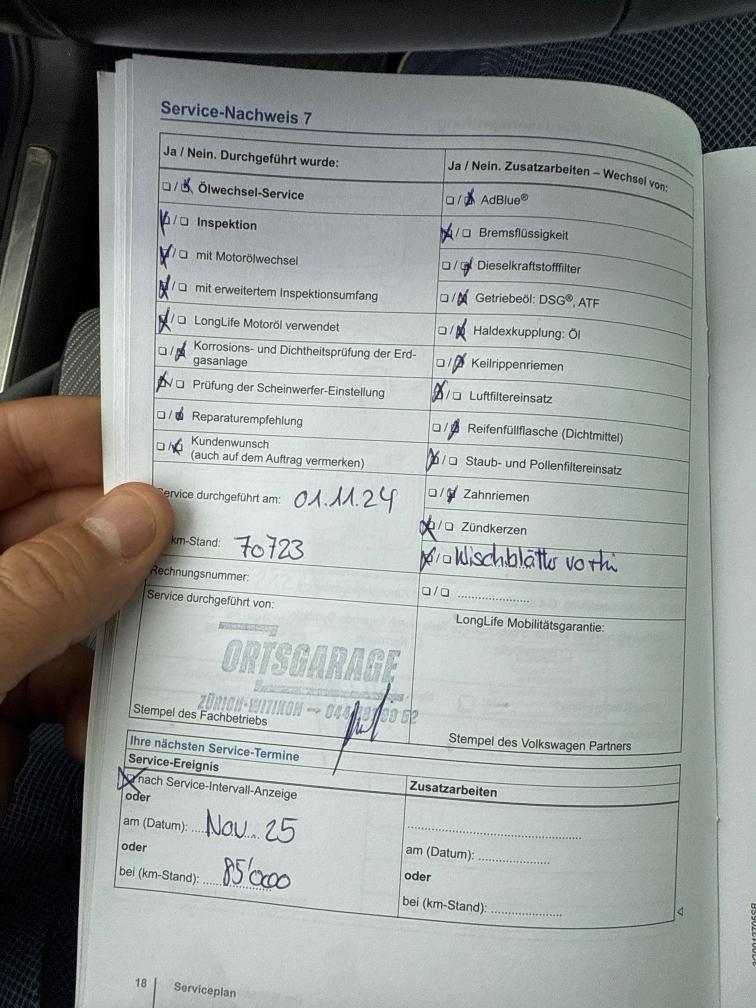 Service-Nachweis 7
Ja / Nein. Durchgeführt wurde:
☐/☒ Ölwechsel-Service
☒/☐ Inspektion
☒/☐ mit Motorölwechsel
☒/☐ mit erweitertem Inspektionsumfang
☒/☐ LongLife Motoröl verwendet
☐/☒ Korrosions- und Dichtheitsprüfung der Erd-
gasanlage
☒/☐ Prüfung der Scheinwerfer-Einstellung
☐/☒ Reparaturempfehlung
☐/☒ Kundenwunsch
(auch auf dem Auftrag vermerken)
Service durchgeführt am: 01.11.24
km-Stand: 70723
Rechnungsnummer:
Service durchgeführt von:
ORTSGARAGE
ZÜRICH-WITIKON
Stempel des Fachbetriebs
Ja / Nein. Zusatzarbeiten – Wechsel von:
☐/☒ AdBlue®
☒/☐ Bremsflüssigkeit
☐/☒ Dieselkraftstofffilter
☐/☒ Getriebeöl: DSG®, ATF
☐/☒ Haldexkupplung: Öl
☐/☒ Keilrippenriemen
☒/☐ Luftfiltereinsatz
☐/☒ Reifenfüllflasche (Dichtmittel)
☒/☐ Staub- und Pollenfiltereinsatz
☐/☒ Zahnriemen
☒/☐ Zündkerzen
☒/☐ Wischblätter
☐/☐ ....................
LongLife Mobilitätsgarantie:
Stempel des Volkswagen Partners
Ihre nächsten Service-Termine
Service-Ereignis
☒ nach Service-Intervall-Anzeige
oder
am (Datum): Nov. 25
oder
bei (km-Stand): 85'000
Zusatzarbeiten
........................................
am (Datum): ....................
oder
bei (km-Stand): ....................
18 | Serviceplan